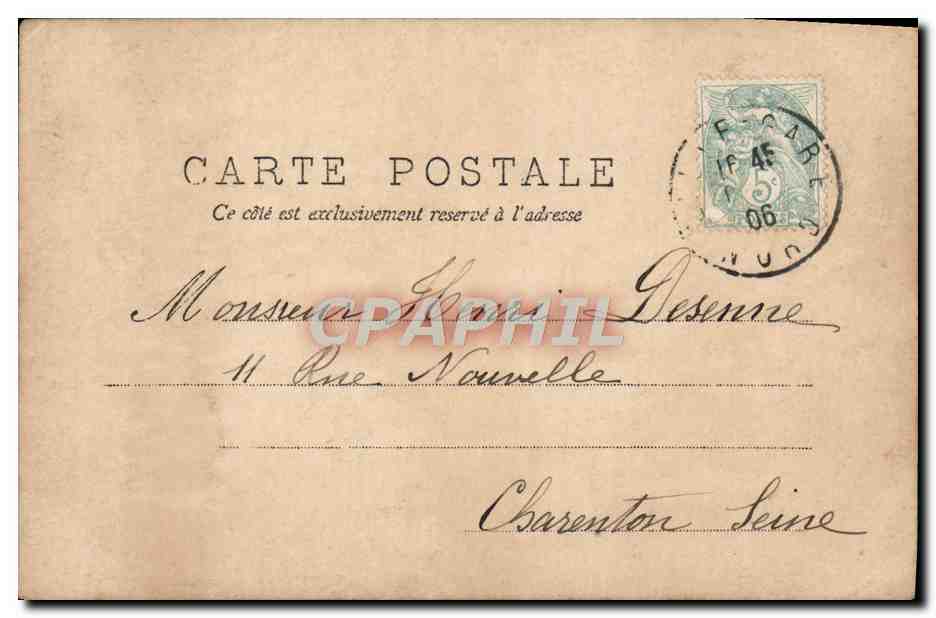 CARTE POSTALE
Ce côté est exclusivement reservé à l'adresse
45
5c
06
Monsieur Henri Desenne
CPAPHIL
11 Rue Nouvelle
Charenton Seine